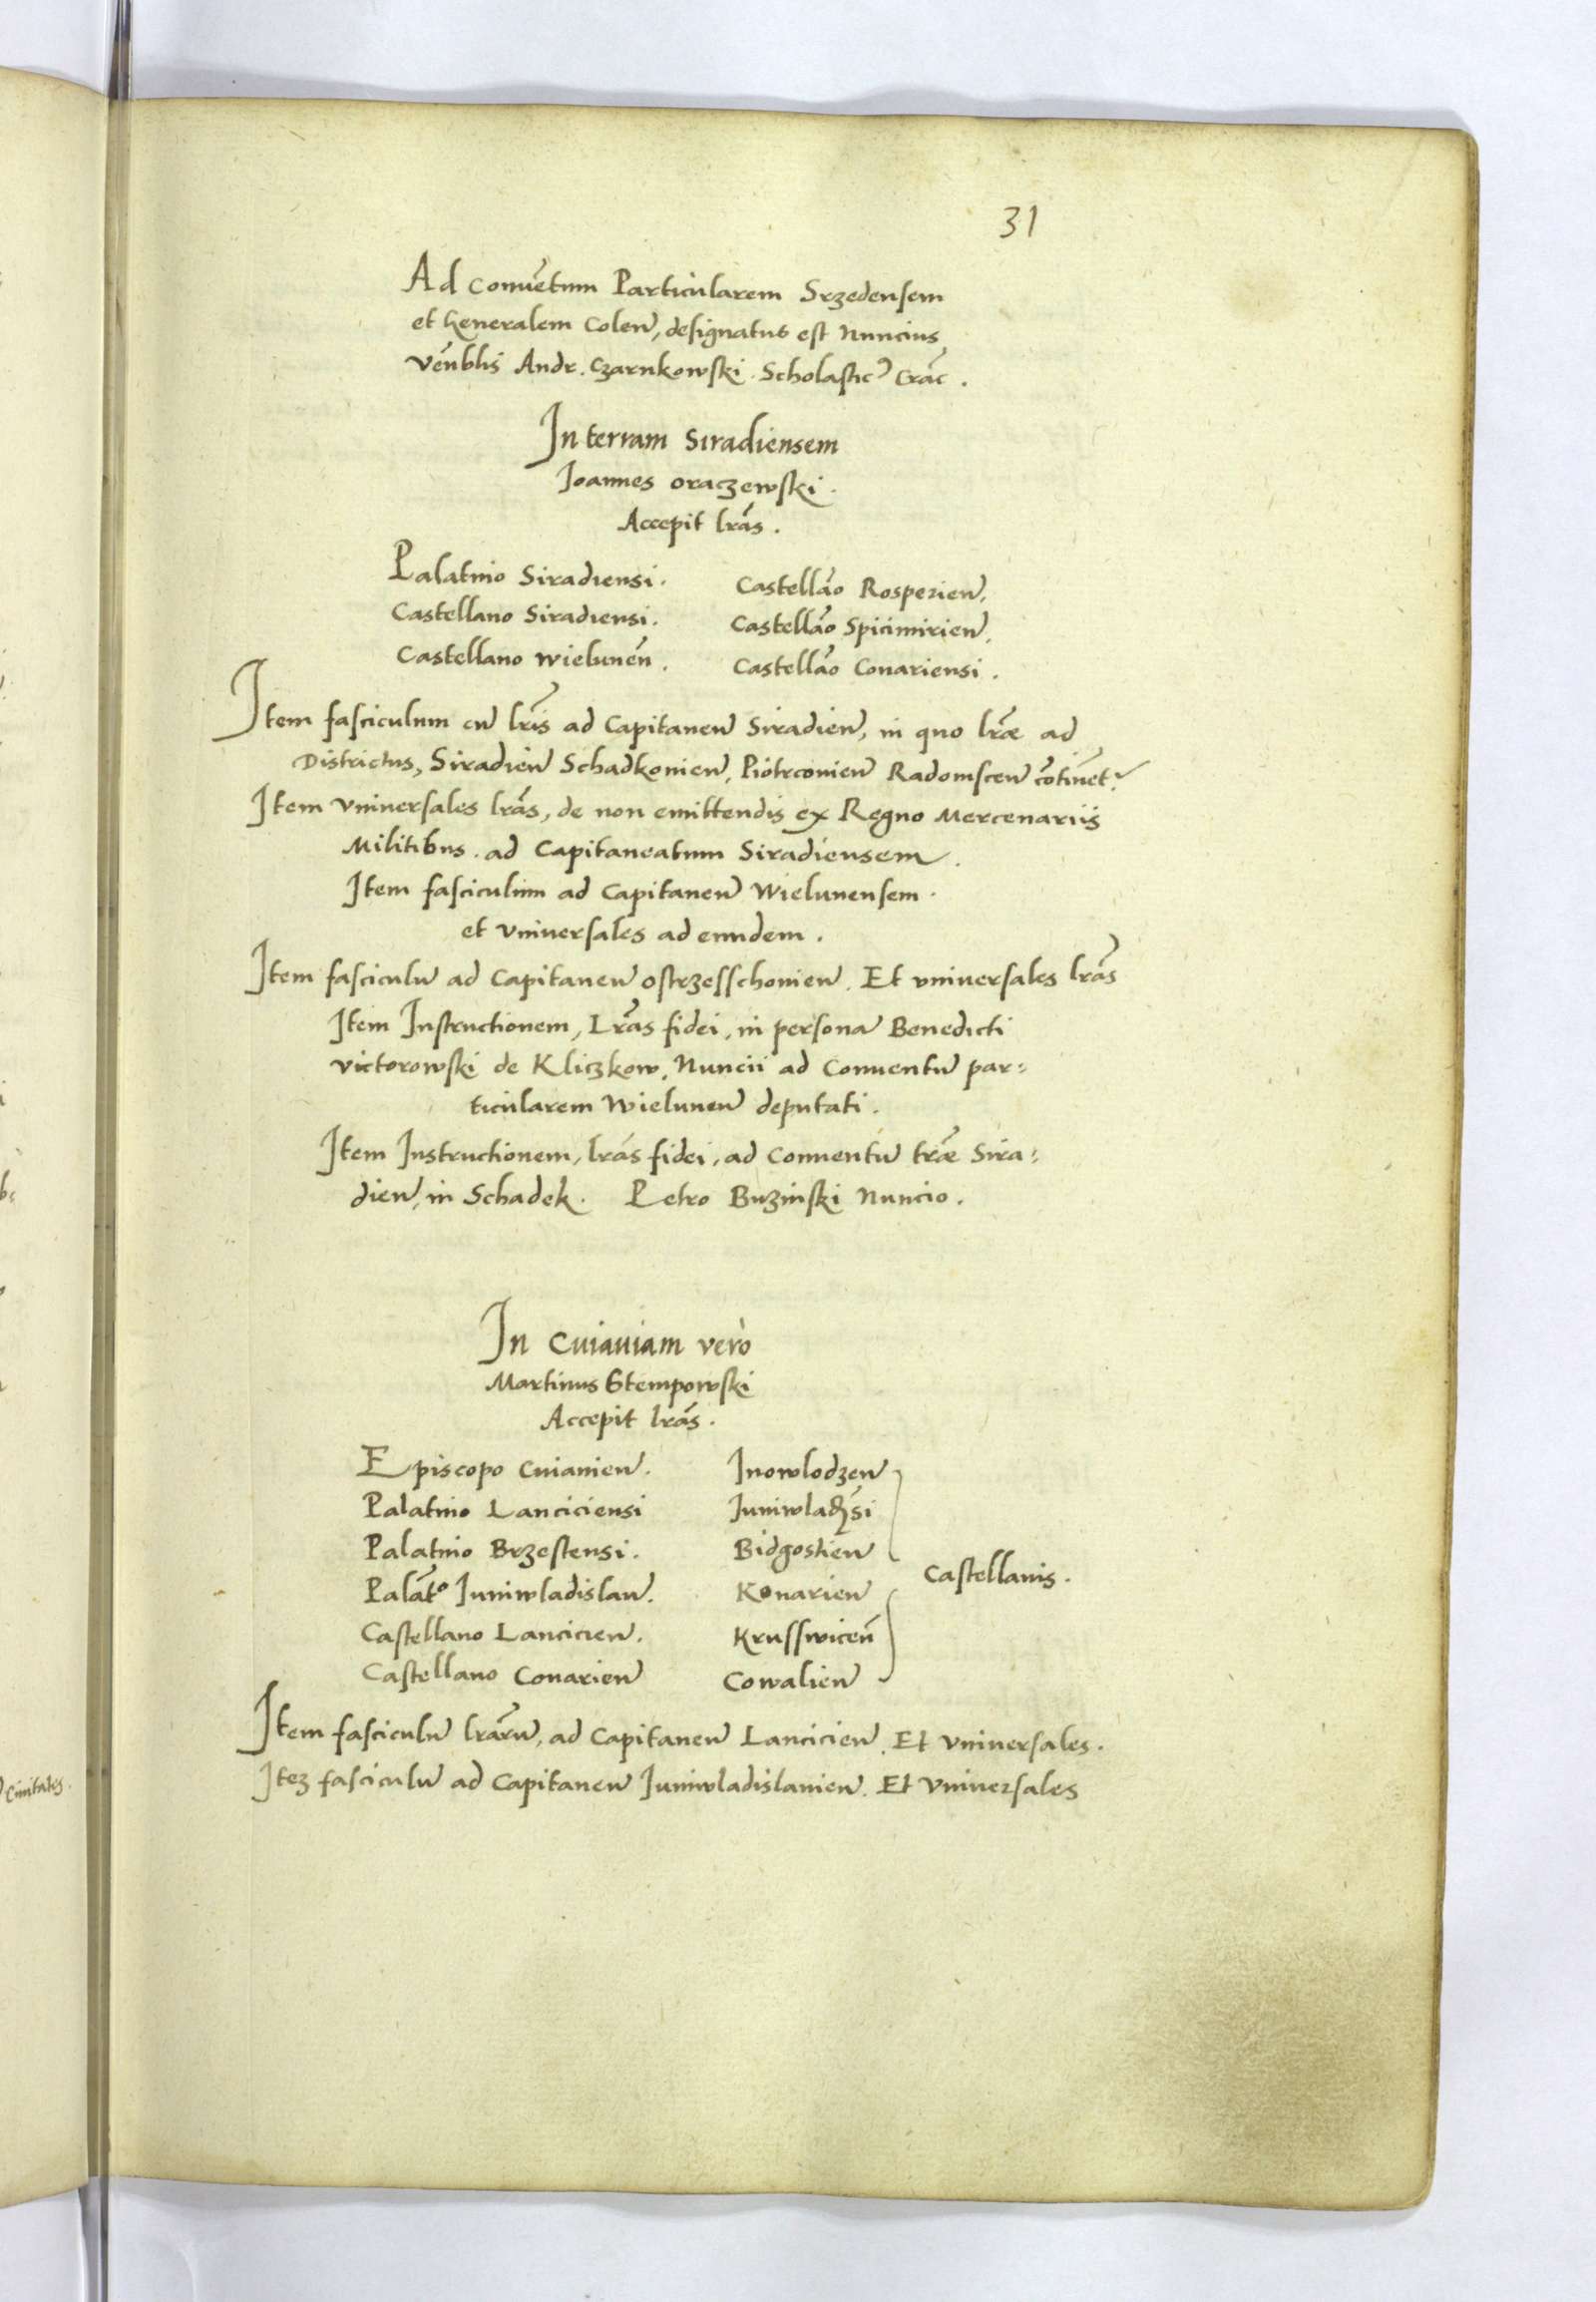 31
Ad Conuētum Particularem Srzedensem
et Generalem Coleñ, designatus est Nuncius
Veñblis Andr. Czarnkowski. Scholastic Crāc.
In terram Siradiensem
Joannes Oraczewski.
Accepit lrās.
Palatino Siradiensi. Castellāo Rosperien̄.
Castellano Siradiensi. Castellāo Spicimirien̄.
Castellano Wielunen̄. Castellāo Conariensi.
Item fasciculum cū lrīs ad Capitaneū Siradien̄, in quo lrāe ad
Districtus, Siradien̄ Schadkonien̄, Piotrconien̄ Radomscen̄ cōtinēt.
Item Vniuersales lrās, de non emittendis ex Regno Mercenariis
Militibus. ad Capitaneatum Siradiensem.
Item fasciculum ad Capitaneū Wielunensem.
et Vniuersales ad eundem.
Item fasciculū ad Capitaneū Ostrzesschonien̄. Et vniuersales lrās
Item Instructionem, Lrās fidei, in personā Benedicti
Victorowski de Kliczkow, Nuncii ad Conuentū par=
ticularem Wielunen̄ deputati.
Item Instructionem, lrās fidei, ad Conuentū trāe Sira=
dien̄, in Schadek. Petro Buzinski Nuncio.
In Cuiauiam verò
Martinus Stempowski
Accepit lrās.
Episcopo Cuiauien̄. Inowlodzen̄
Palatino Lanciciensi Juniwladsī
Palatino Brzestensi. Bidgostien̄
Castellanis.
Palāto Juniwladislau̅. Konarien̄
Castellano Lancicien̄. Krusswicen̄
Castellano Conarien̄ Cowalien̄
Item fasciculū lrārū, ad Capitaneū Lancicien̄. Et Vniuersales.
Itez fasciculū ad Capitaneū Juniwladislauien̄. Et Vniuersales
Ciuitates.